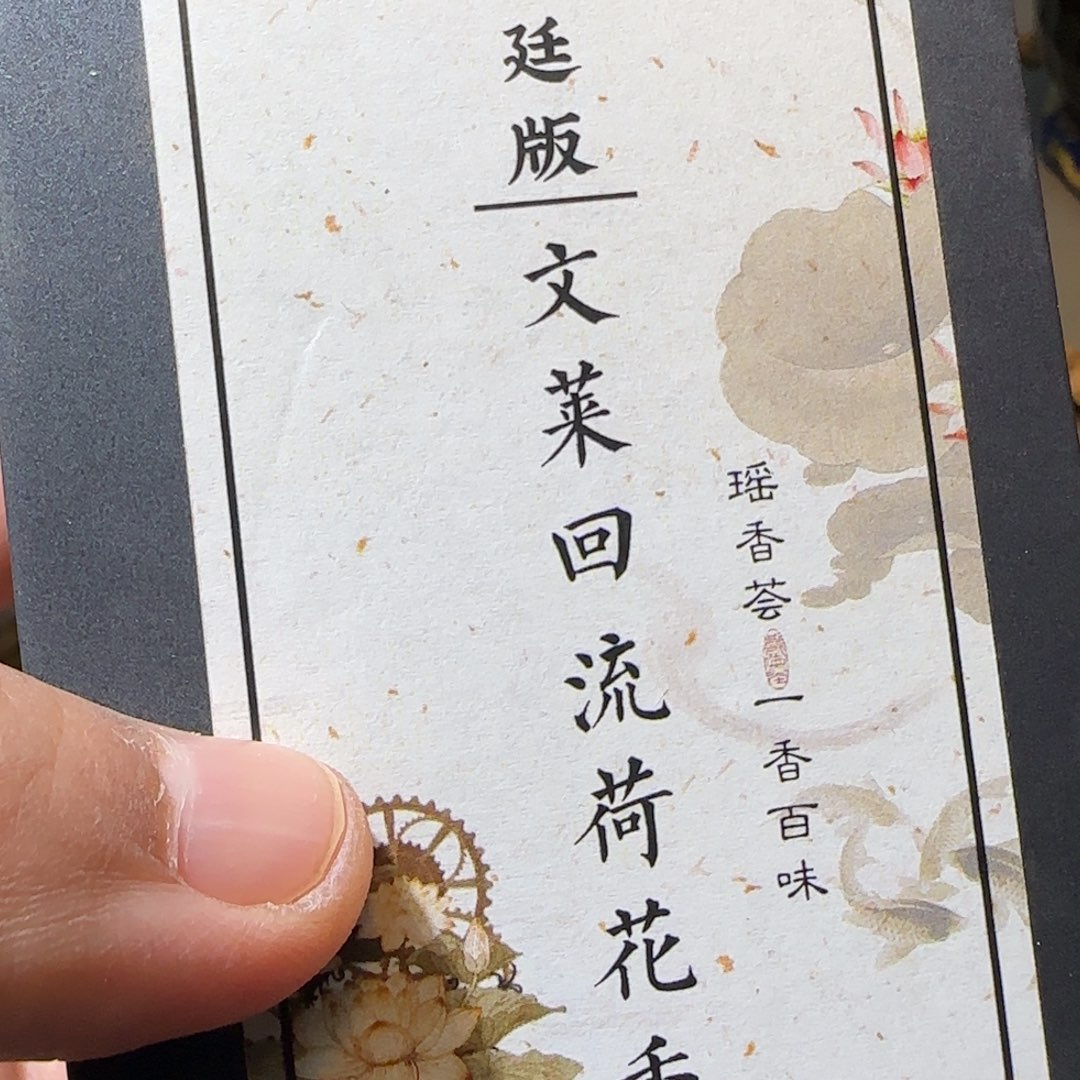 廷版
文莱回流荷花香
瑶香荟
一香百味